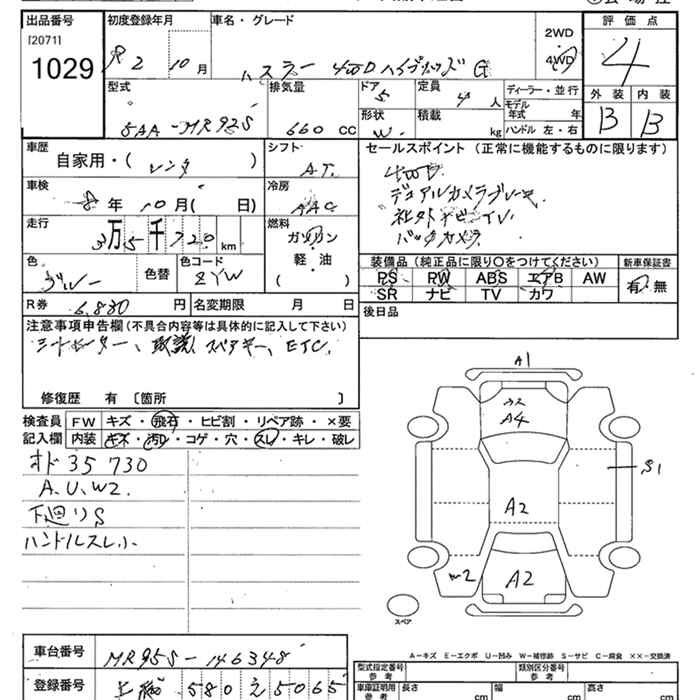 出品番号 初度登録年月 車名・グレード 2WD 評価点
[2071]
1029 R2 10月 ハスラー 4WD ハイブリッド G 4WD 4
型式 排気量 ドア 定員 ディーラー・並行 外装 内装
5 4人 モデル年式 年
5AA-MR92S 660 CC 形状 積載 B B
W. kg ハンドル 左・右
車歴 シフト セールスポイント(正常に機能するものに限ります)
自家用・( レンタ ) AT.
4WD.
車検 冷房 デュアルカメラブレーキ.
8年 10月( 日) AAC 社外ナビ・TV.
走行 燃料 バックカメラ
3万5千720km ガソリン
軽・油
( )
装備品(純正品に限り○をつけてください) 新車保証書
色 色替 色コード PS PW ABS エアB AW 有・無
グレー ZYW SR ナビ TV カワ
R券 6,880円 名変期限 月 日 後日品
注意事項申告欄(不具合内容等は具体的に記入して下さい)
シートヒーター、取説、スペアキー、ETC.
修復歴 有 〔箇所 〕
検査員 FW キズ・飛石・ヒビ割・リペア跡・×要
記入欄 内装 キズ・汚れ・コゲ・穴・スレ・キレ・破レ
オド 35730
A.U.W2.
下廻りS
ハンドルスレ小
A1
A4
S1
A2
W2
A2
スペア
A-キズ E-エクボ U-凹み W-補修跡 S-サビ C-腐食 ××-交換済
車台番号 MR92S-146348
登録番号 580 え 5065
型式指定番号 参考 類別区分番号 参考
車庫証明用 参考 長さ cm 幅 cm 高さ cm